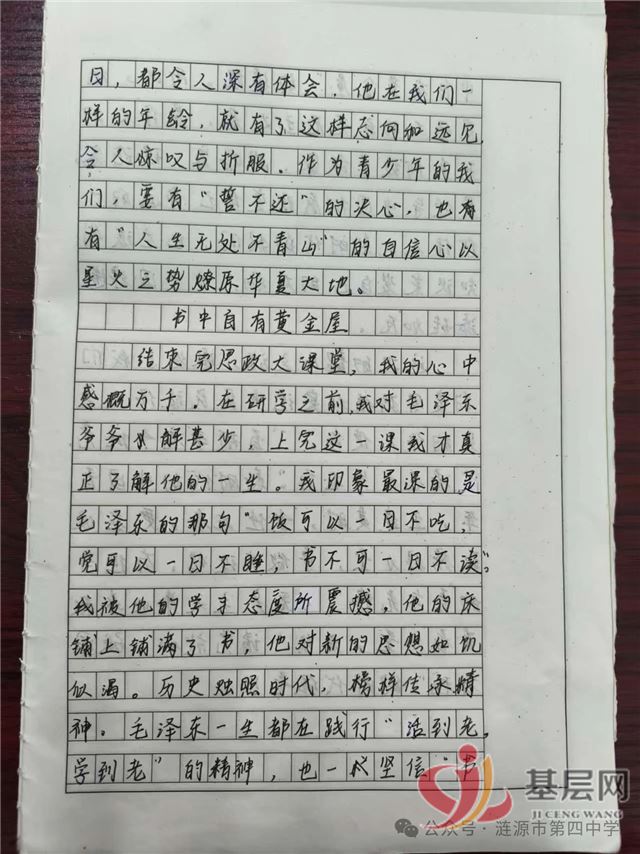 日，都令人深有体会，他在我们一
样的年龄，就有了这样志向和远见，
令人惊叹与折服。作为青少年的我
们，要有“誓不还”的决心，也有
有“人生无处不青山”的自信心以
星火之势燎原华夏大地。
书中自有黄金屋
结束完思政大课堂，我的心中
感概万千，在研学之前，我对毛泽东
爷爷了解甚少，上完这一课我才真
正了解他的一生。我印象最深的是
毛泽东的那句“饭可以一日不吃，
觉可以一日不睡，书不可一日不读”。
我被他的学习态度所震撼，他的床
铺上铺满了书，他对新的思想如饥
似渴。历史烛照时代，榜样传承精
神。毛泽东一生都在践行“活到老，
学到老”的精神，也一 坚信“书
基层网
JI CENG WANG
公众号·涟源市第四中学